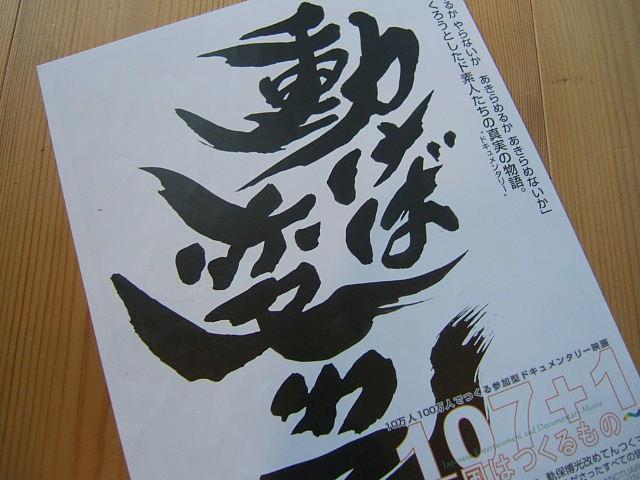 るか やらないか あきらめるか あきらめないか」
くろうとしたド素人たちの真実の物語。
ドキュメンタリー
動けば
変わ
10万人100万人でつくる参加型ドキュメンタリー映画
107+1
Japanese Entertainment and Documentary Movie
国はつくるもの〜
軌保博光改めてんつくマ